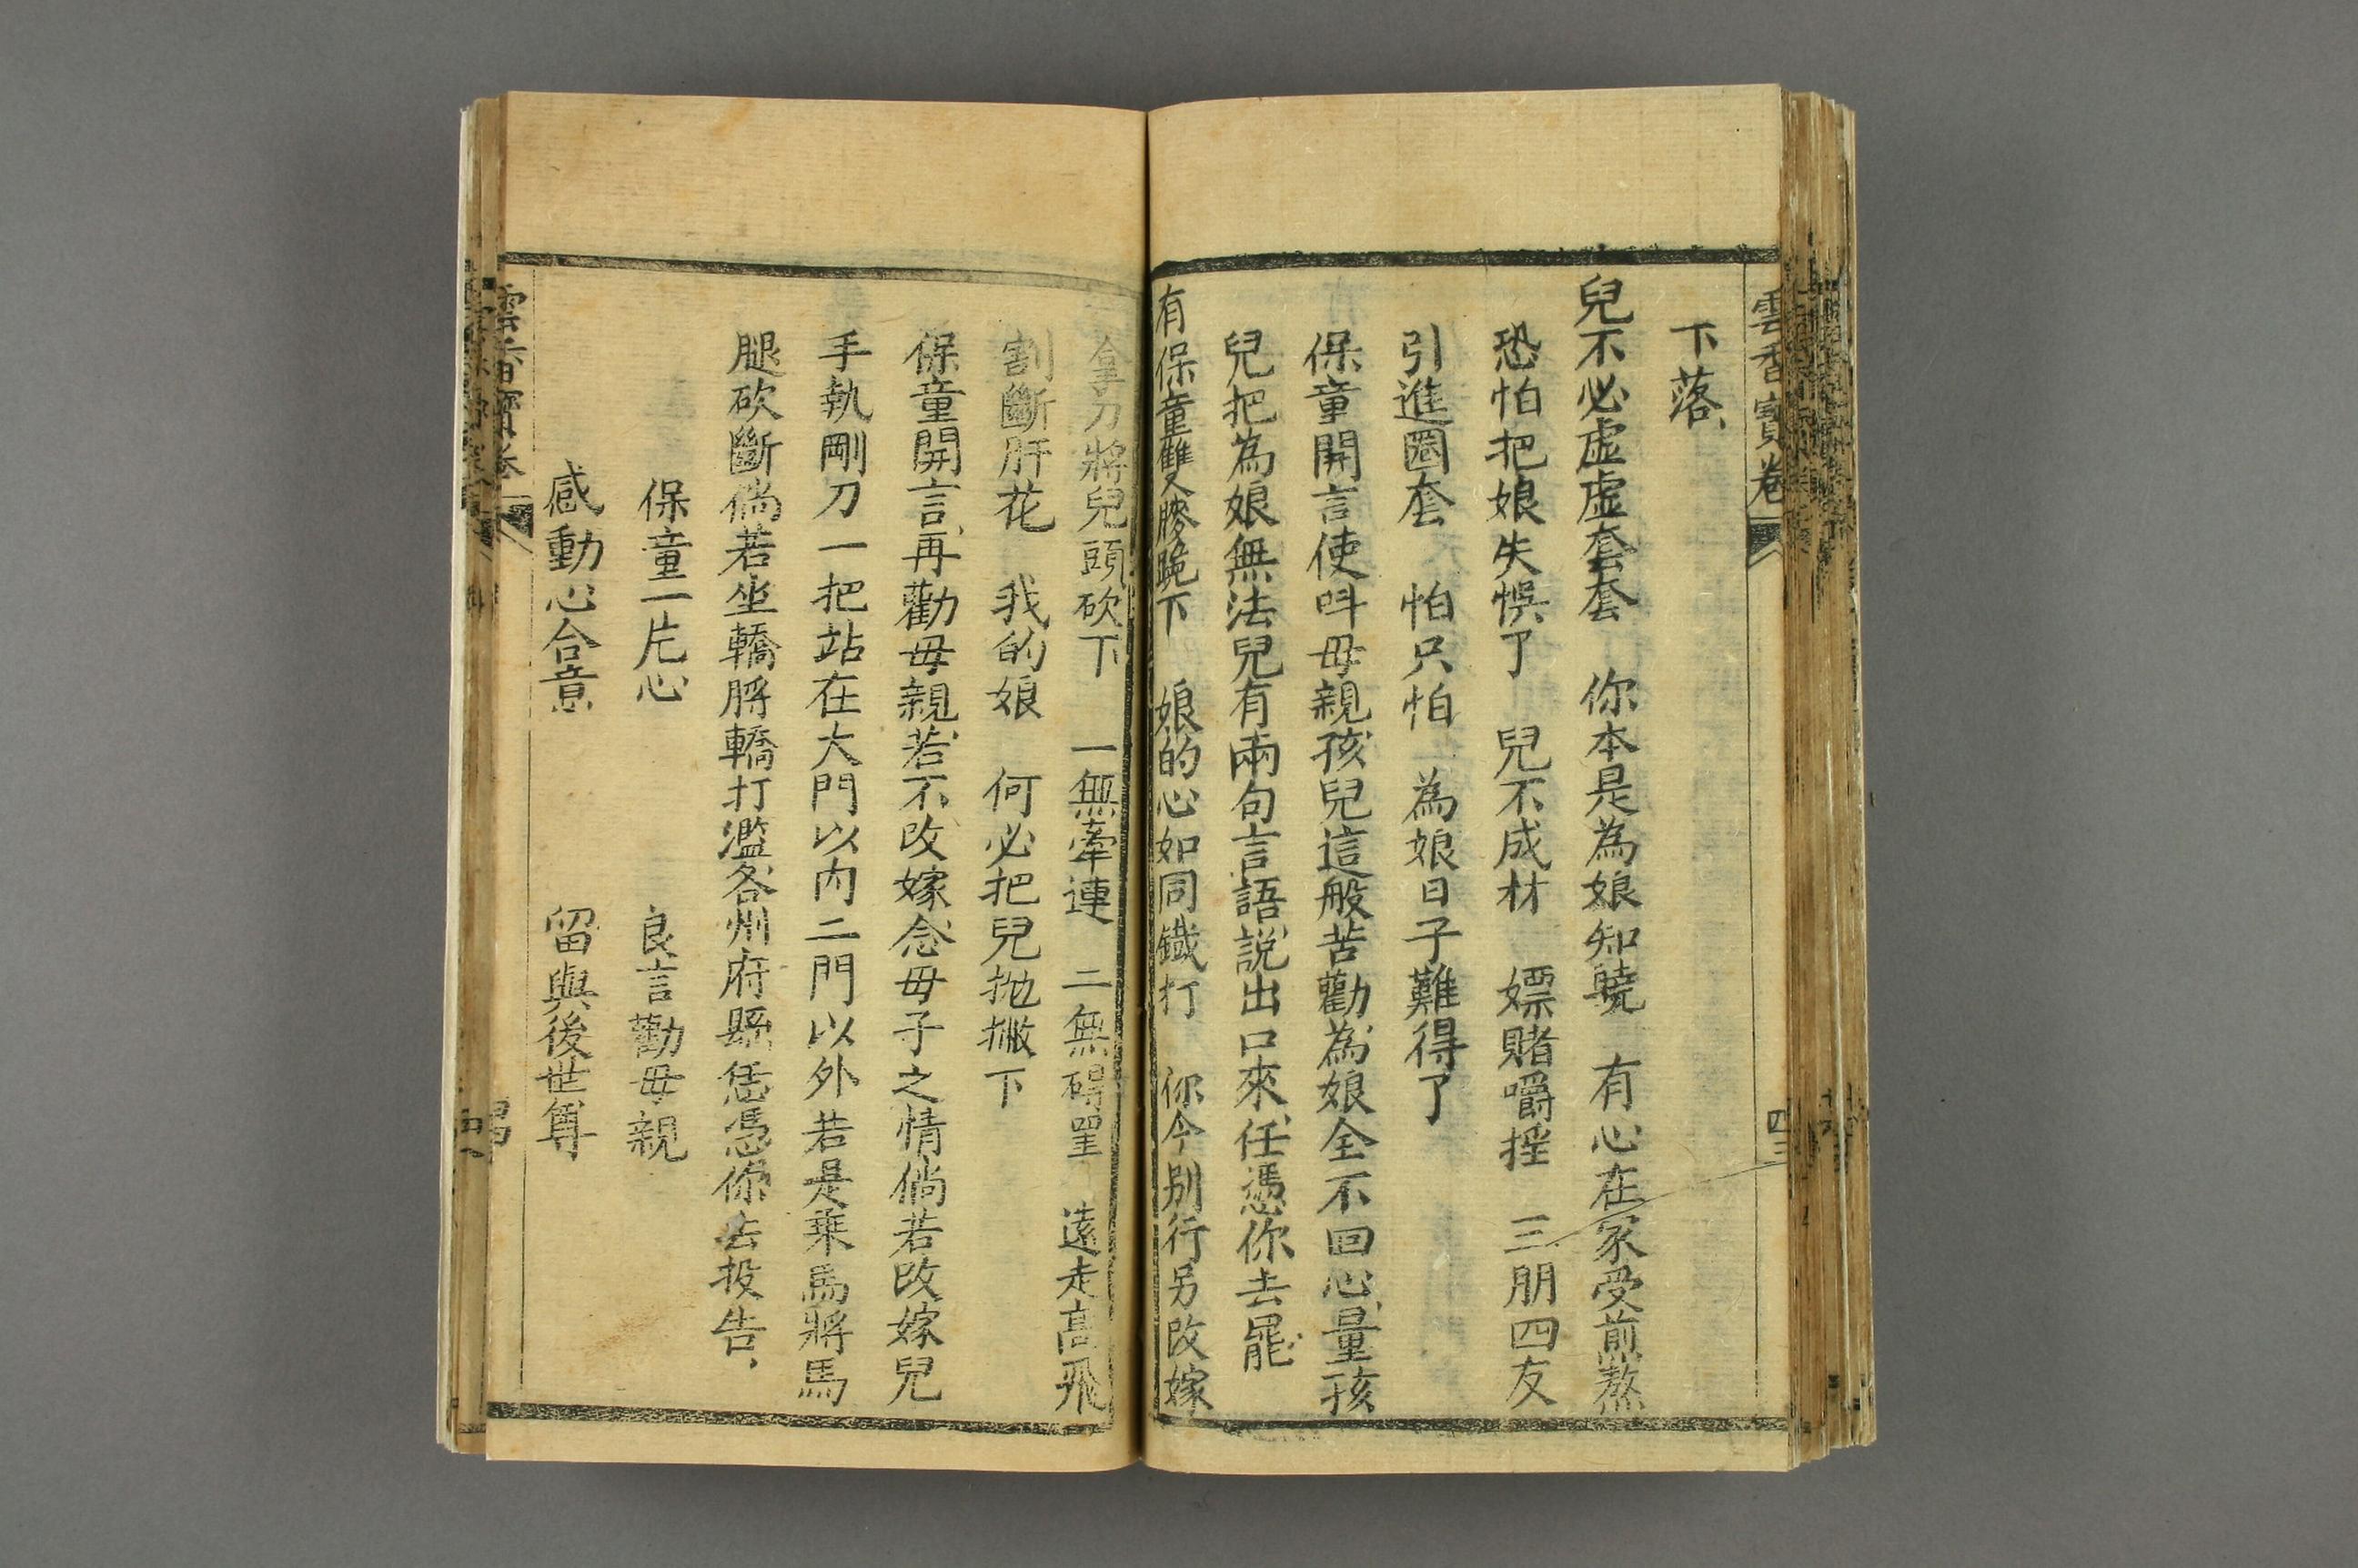 雲香寶卷
四三
下落、
兒不必虛虛套套　你本是為娘知曉　有心在家受煎熬
恐怕把娘失悞了　兒不成材　嫖賭嚼搖　三朋四友
引進圈套　怕只怕　為娘日子難得了
保童開言使呌母親、孩兒這般苦勸、為娘全不回心、量孩
兒把為娘無法兒有兩句言語、説出口來、任憑你去罷、
有保童雙膝跪下　娘的心如同鐵打　你今別行另改嫁
拿刀將兒頭砍下　一無牽連　二無碍罣　遠走高飛
割斷肝花　我的娘　何必把兒抛撇下
保童開言、再勸母親、若不改嫁、念母子之情倘若改嫁兒
手執剛刀一把站在大門以內二門以外若是乘馬將馬
腿砍斷倘若坐轎將轎打濫、各州府縣、恁憑你去投告、
保童一片心　良言勸母親
感動心合意　留與後世尊